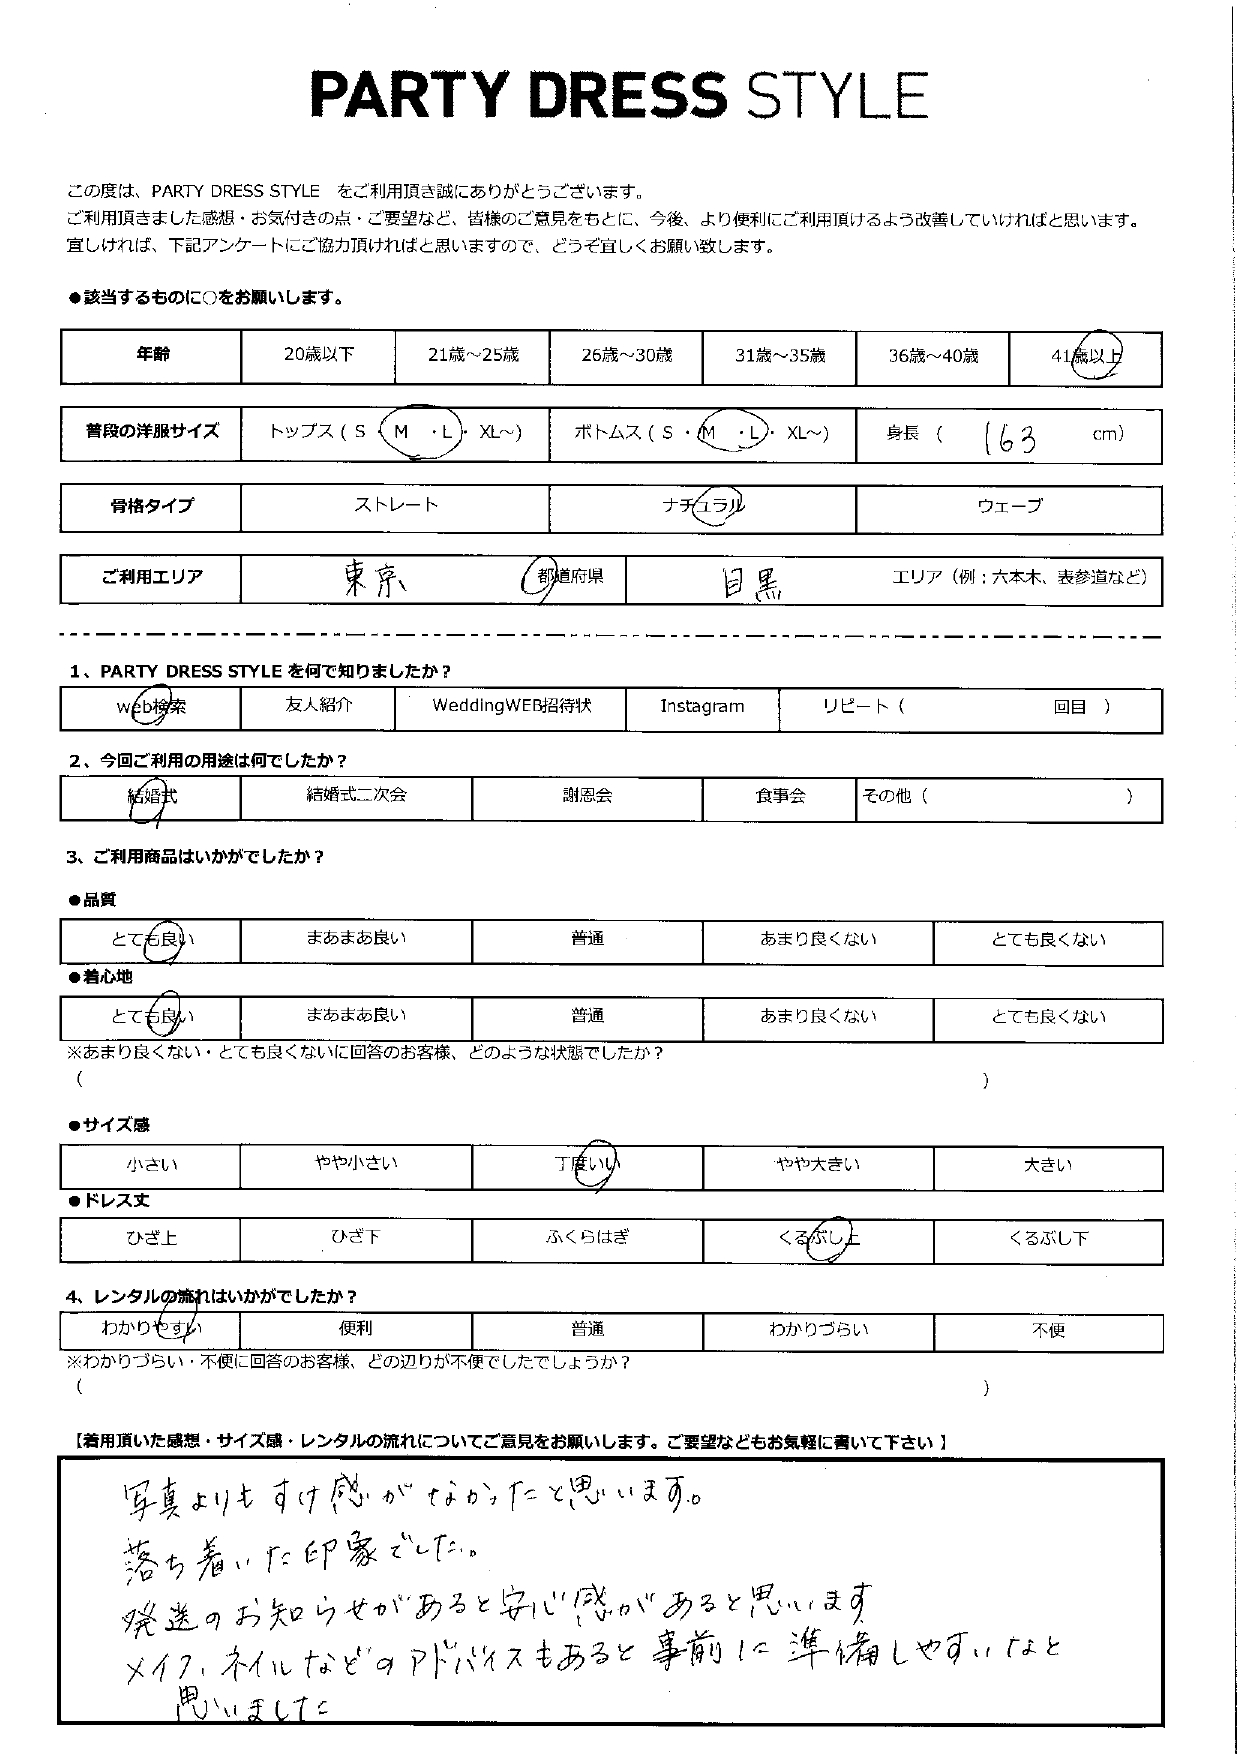 PARTY DRESS STYLE
この度は、PARTY DRESS STYLE　をご利用頂き誠にありがとうございます。
ご利用頂きました感想・お気付きの点・ご要望など、皆様のご意見をもとに、今後、より便利にご利用頂けるよう改善していければと思います。
宜しければ、下記アンケートにご協力頂ければと思いますので、どうぞ宜しくお願い致します。
●該当するものに○をお願いします。
年齢 20歳以下 21歳～25歳 26歳～30歳 31歳～35歳 36歳～40歳 41歳以上
普段の洋服サイズ トップス ( S ・ M ・L ・ XL～) ボトムス ( S ・M ・L ・ XL～) 身長 ( 163 cm)
骨格タイプ ストレート ナチュラル ウェーブ
ご利用エリア 東京 都道府県 目黒 エリア（例：六本木、表参道など）
1、PARTY DRESS STYLE を何で知りましたか？
web検索 友人紹介 WeddingWEB招待状 Instagram リピート（ 回目 ）
2、今回ご利用の用途は何でしたか？
結婚式 結婚式二次会 謝恩会 食事会 その他（ ）
3、ご利用商品はいかがでしたか？
●品質
とても良い まあまあ良い 普通 あまり良くない とても良くない
●着心地
とても良い まあまあ良い 普通 あまり良くない とても良くない
※あまり良くない・とても良くないに回答のお客様、どのような状態でしたか？
（ ）
●サイズ感
小さい やや小さい 丁度いい やや大きい 大きい
●ドレス丈
ひざ上 ひざ下 ふくらはぎ くるぶし上 くるぶし下
4、レンタルの流れはいかがでしたか？
わかりやすい 便利 普通 わかりづらい 不便
※わかりづらい・不便に回答のお客様、どの辺りが不便でしたでしょうか？
（ ）
【着用頂いた感想・サイズ感・レンタルの流れについてご意見をお願いします。ご要望などもお気軽に書いて下さい 】
写真よりもすけ感がなかったと思います。
落ち着いた印象でした。
発送のお知らせがあると安心感があると思います
メイク、ネイルなどのアドバイスもあると事前に準備しやすいなと
思いました